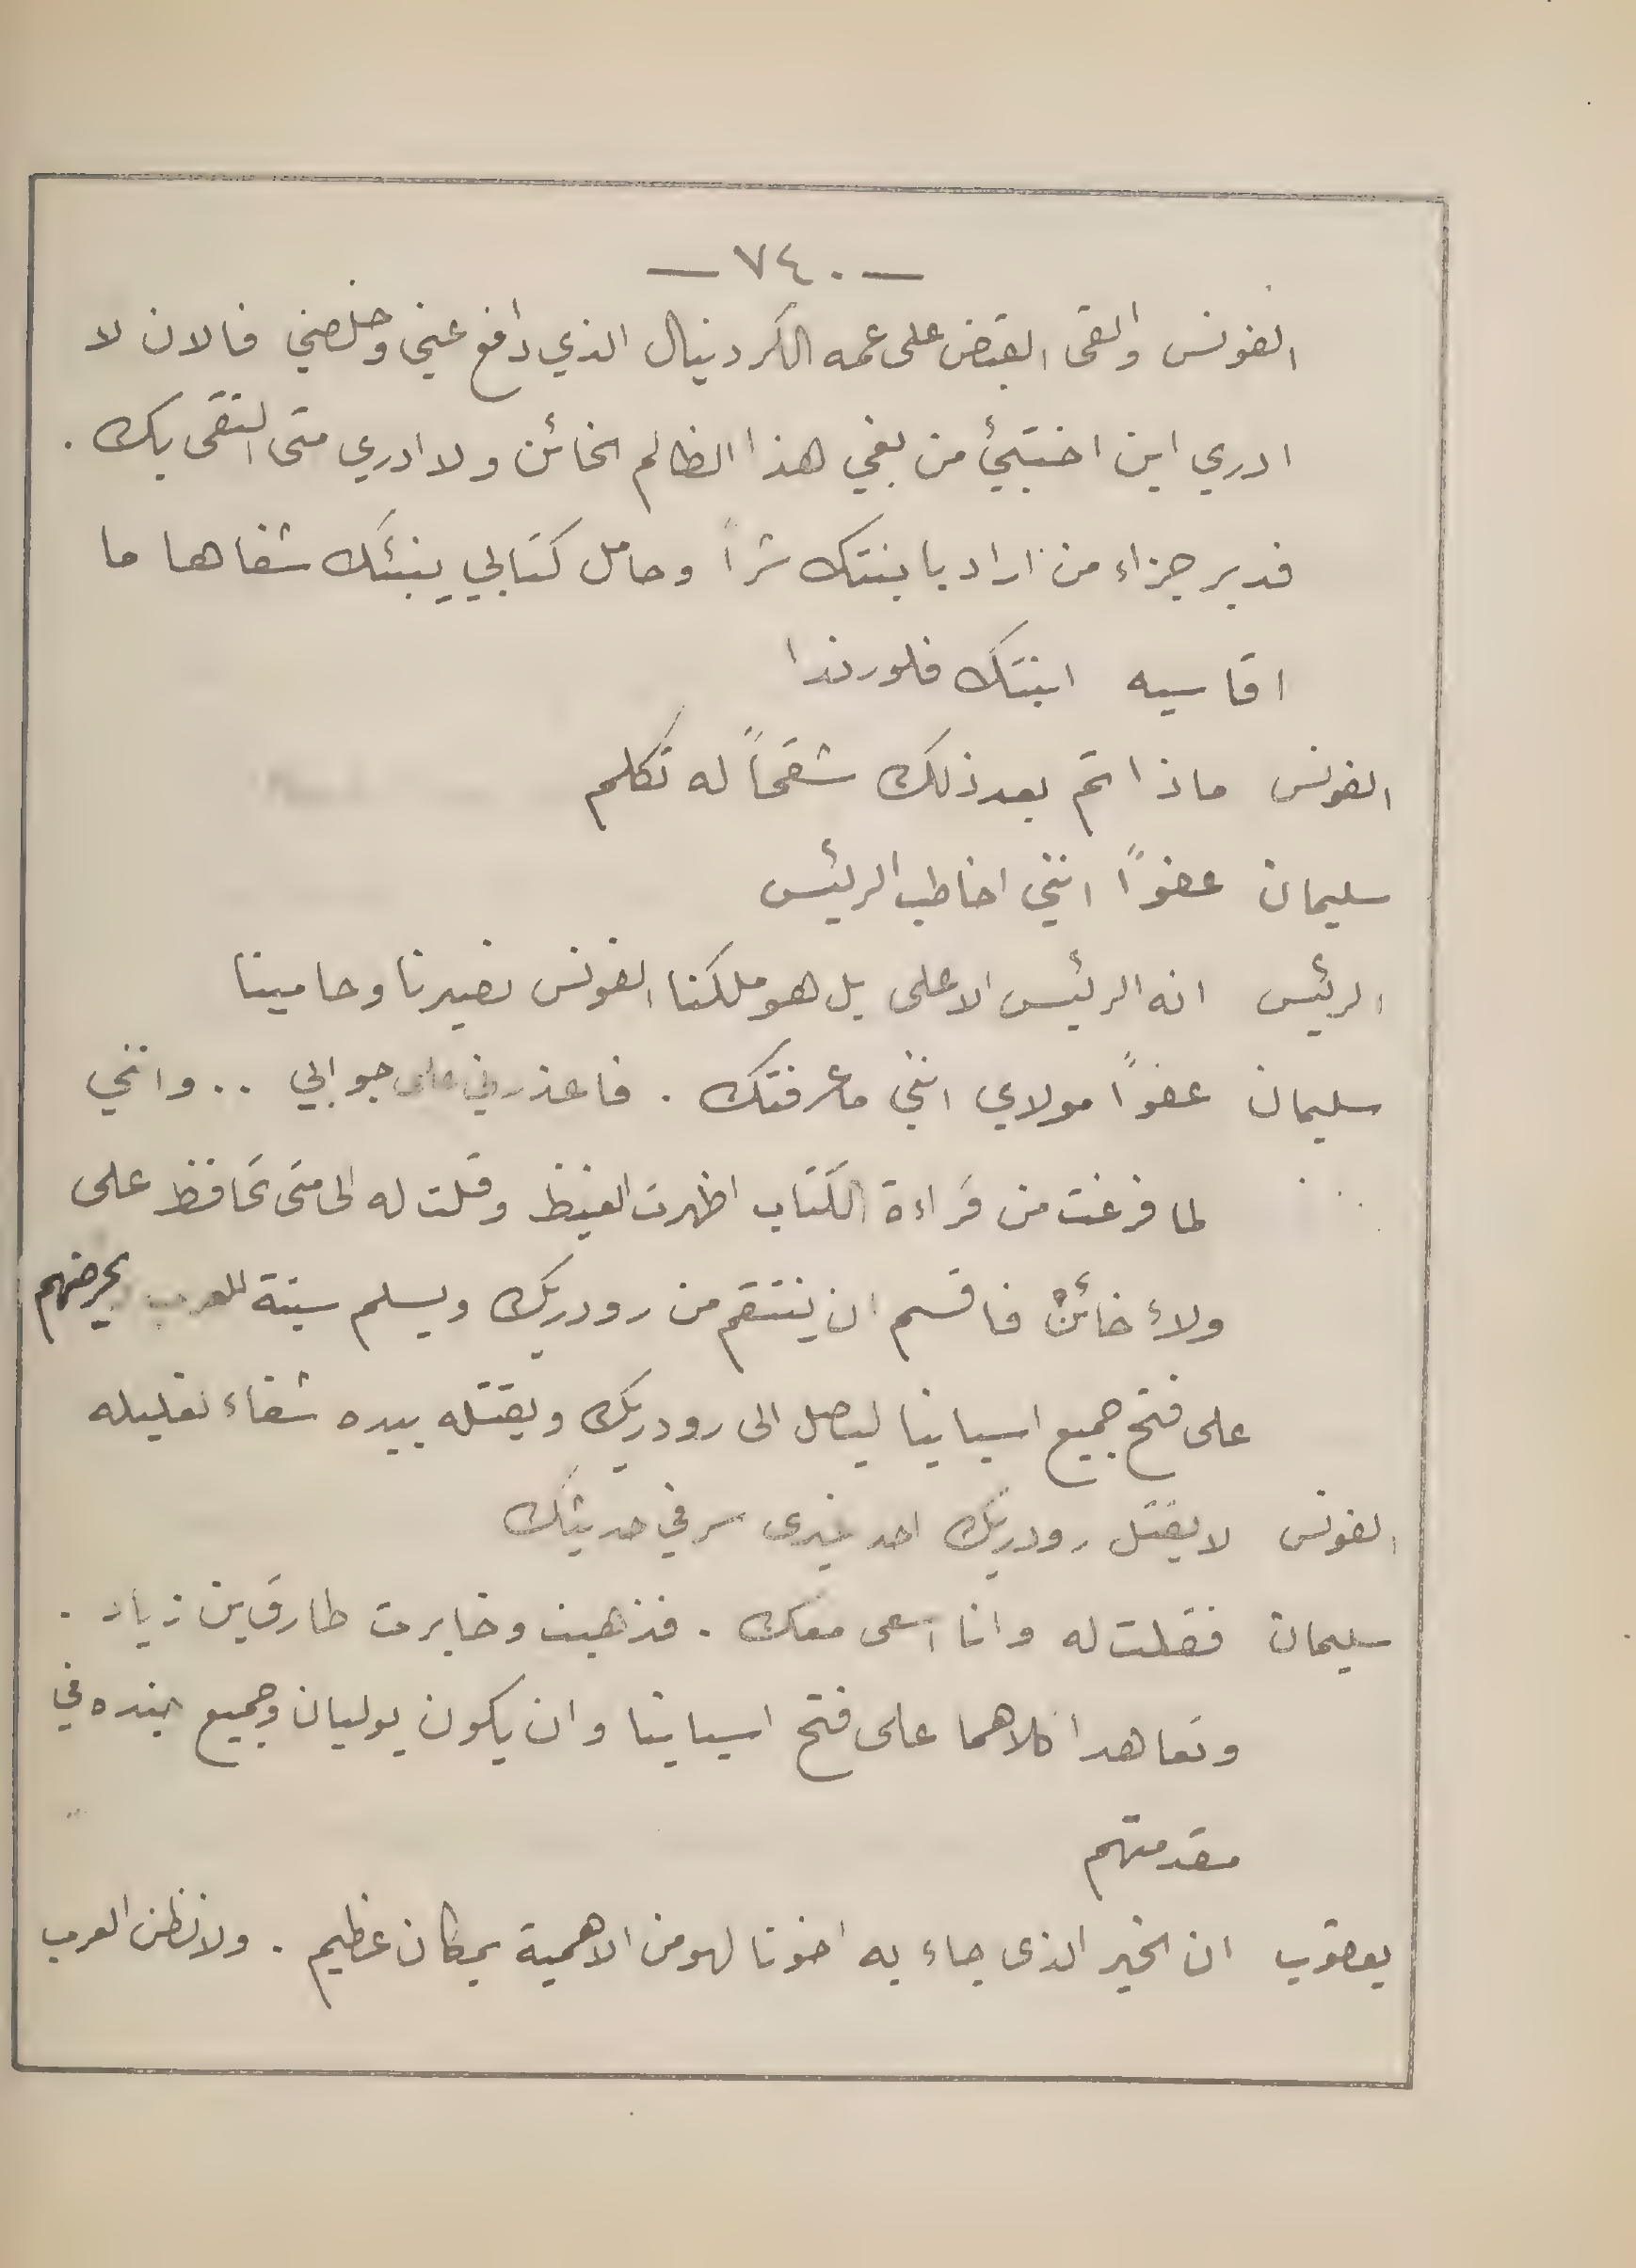 — ٧٤٠ —
الفونس والقى القبض على عمه الكردينال الذي دافع عني وخلصني فالان لا
ادري اين اختبئ من بغي هذا الظالم الخائن ولا ادري متى التقى بك .
فدبر جزاء من اراد بابنتك شراً وحامل كتابي ينبئك شفاها ما
اقاسيه ابنتك فلورندا
الفونس ماذا تم بعد ذلك شقحاً له تكلم
سليمان عفواً انني اخاطب الرئيس
الرئيس انه الرئيس الاعلى بل هو ملكنا الفونس نصيرنا وحامينا
سليمان عفواً مولاي انني ما عرفتك . فاعذرني على جوابي .. وانني
لما فرغت من قراءة الكتاب اظهرت الغيظ وقلت له الى متى تحافظ على
ولاء خائن فاقسم ان ينتقم من رودريك ويسلم سبتة للعرب يحرضهم
على فتح جميع اسبانيا ليصل الى رودريك ويقتله بيده شفاء لغليله
الفونس لا يقتل رودريك احد غيرى سر في حديثك
سليمان فقلت له وانا اسعى معك . فذهبت وخابرت طارق بن زياد .
وتعاهدا كلاهما على فتح اسبانيا وان يكون يوليان وجميع جنده في
مقدمتهم
يعقوب ان الخبر الذى جاء به اخونا لهو من الاهمية بمكان عظيم . ولا نظن العرب